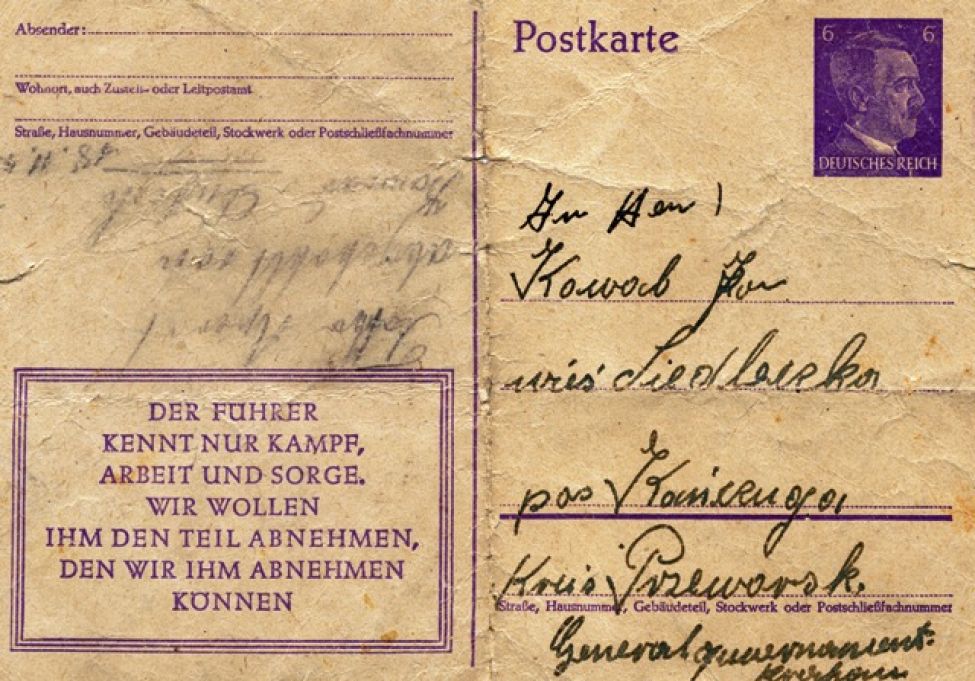 Absender:
Wohnort, auch Zustell- oder Leitpostamt
Straße, Hausnummer, Gebäudeteil, Stockwerk oder Postschließfachnummer
DER FÜHRER
KENNT NUR KAMPF,
ARBEIT UND SORGE.
WIR WOLLEN
IHM DEN TEIL ABNEHMEN,
DEN WIR IHM ABNEHMEN
KÖNNEN
Postkarte
6 6
DEUTSCHES REICH
Kowab
wieś Siedleczka
pos Kańczuga
Kreis Przeworsk.
Straße, Hausnummer, Gebäudeteil, Stockwerk oder Postschließfachnummer
Generalguvernament